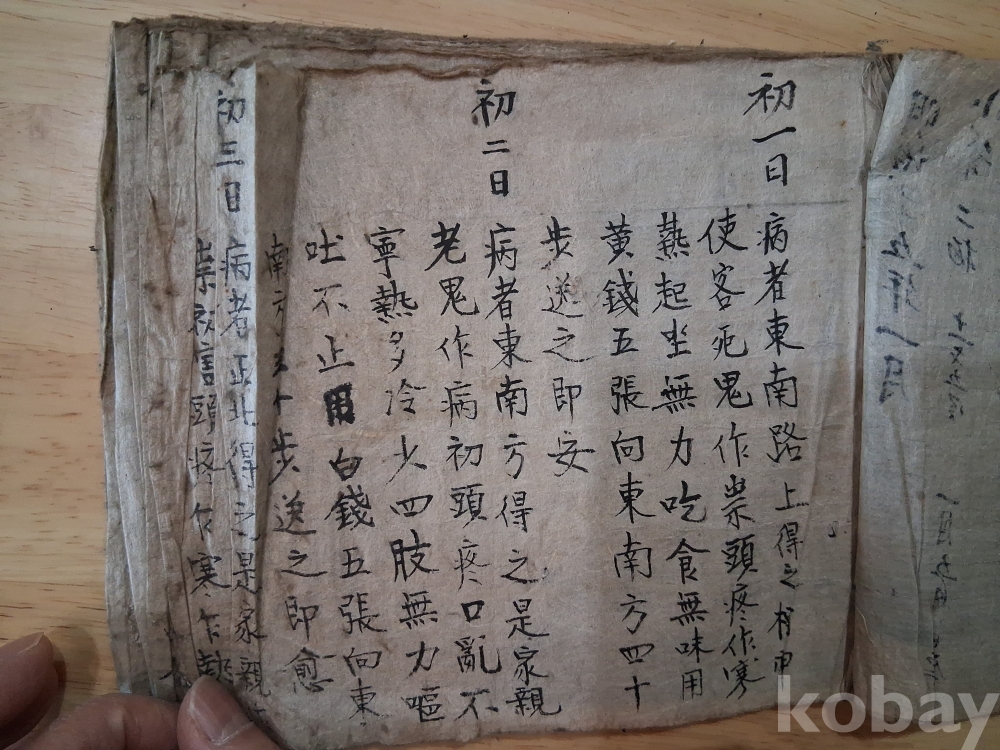 初一日
病者東南路上得之
使客死鬼作祟頭疼作寒
熱起坐無力吃食無味用
黄錢五張向東南方四十
步送之即安
初二日
病者東南方得之是家親
老鬼作病初頭疼口亂不
寧熱多冷少四肢無力嘔
吐不止用白錢五張向東
南方 十步送之即愈
初三日
病者正北得之是家親
祟 害頭疼乍寒乍熱
kobay